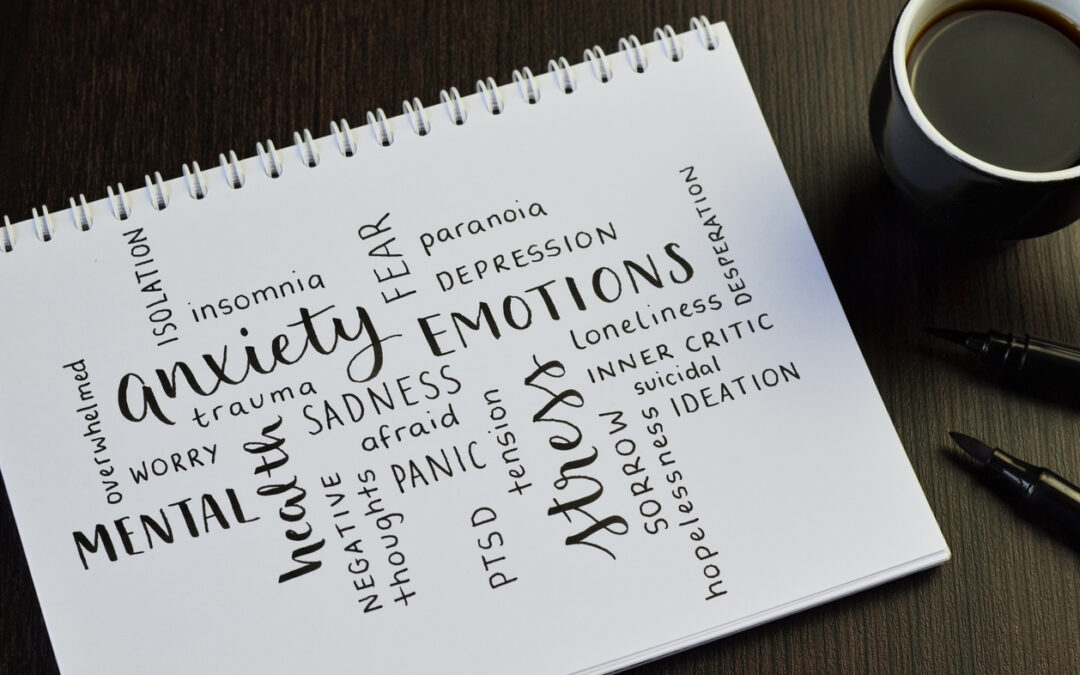 ISOLATION
insomnia
FEAR
paranoia
DEPRESSION
DESPERATION
overwhelmed
anxiety
EMOTIONS
loneliness
trauma
SADNESS
INNER CRITIC
WORRY
afraid
stress
suicidal
IDEATION
MENTAL
health
PANIC
tension
SORROW
NEGATIVE
thoughts
PTSD
hopelessness